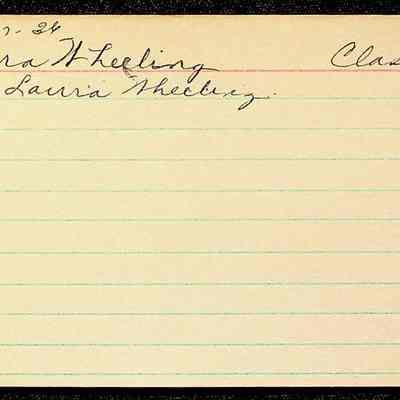 7-26
ra Wheeling Clas
Laura Wheeling.